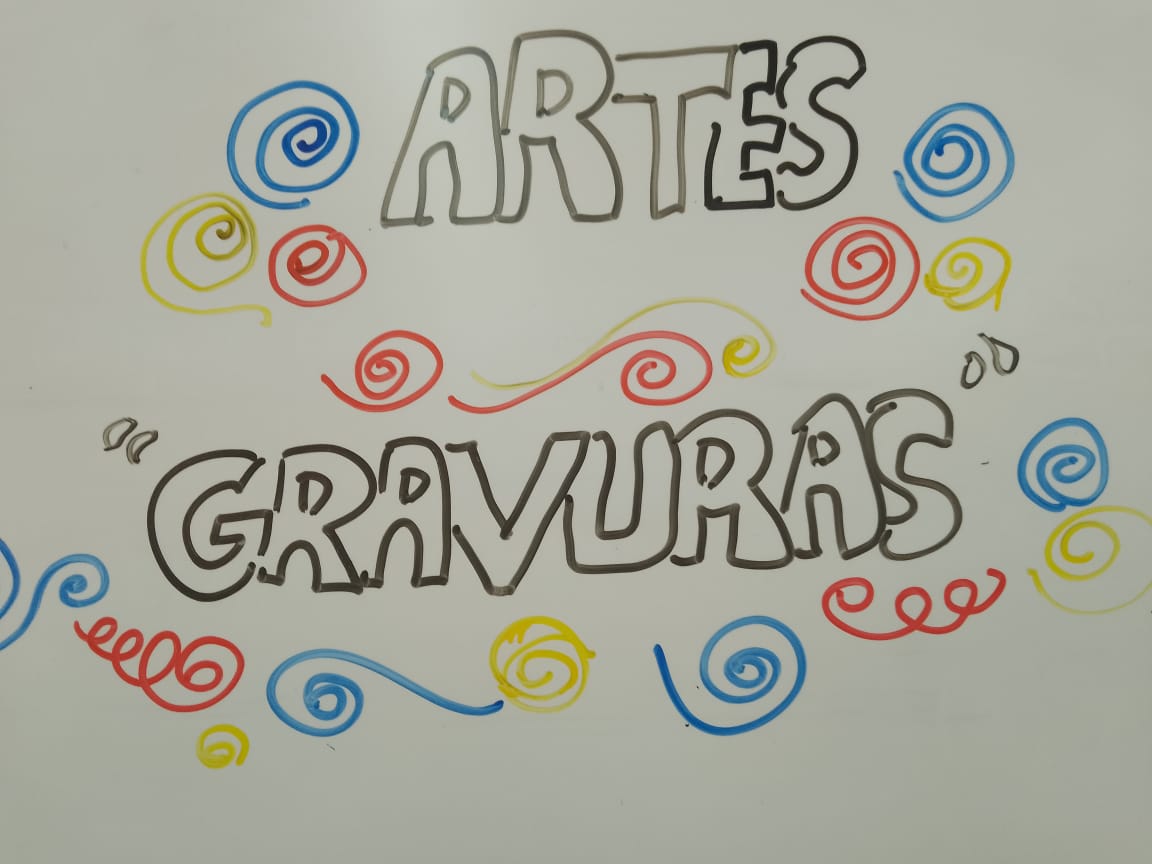 ARTES
"GRAVURAS"